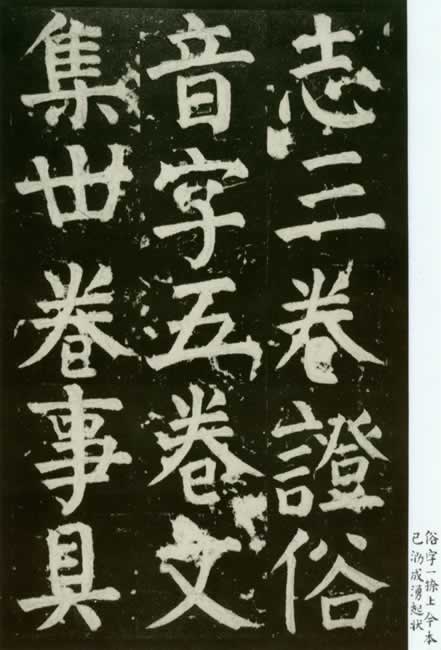 志三卷證俗
音字五卷文
集丗卷事具
俗字一捺上今本
已泐成湧起狀